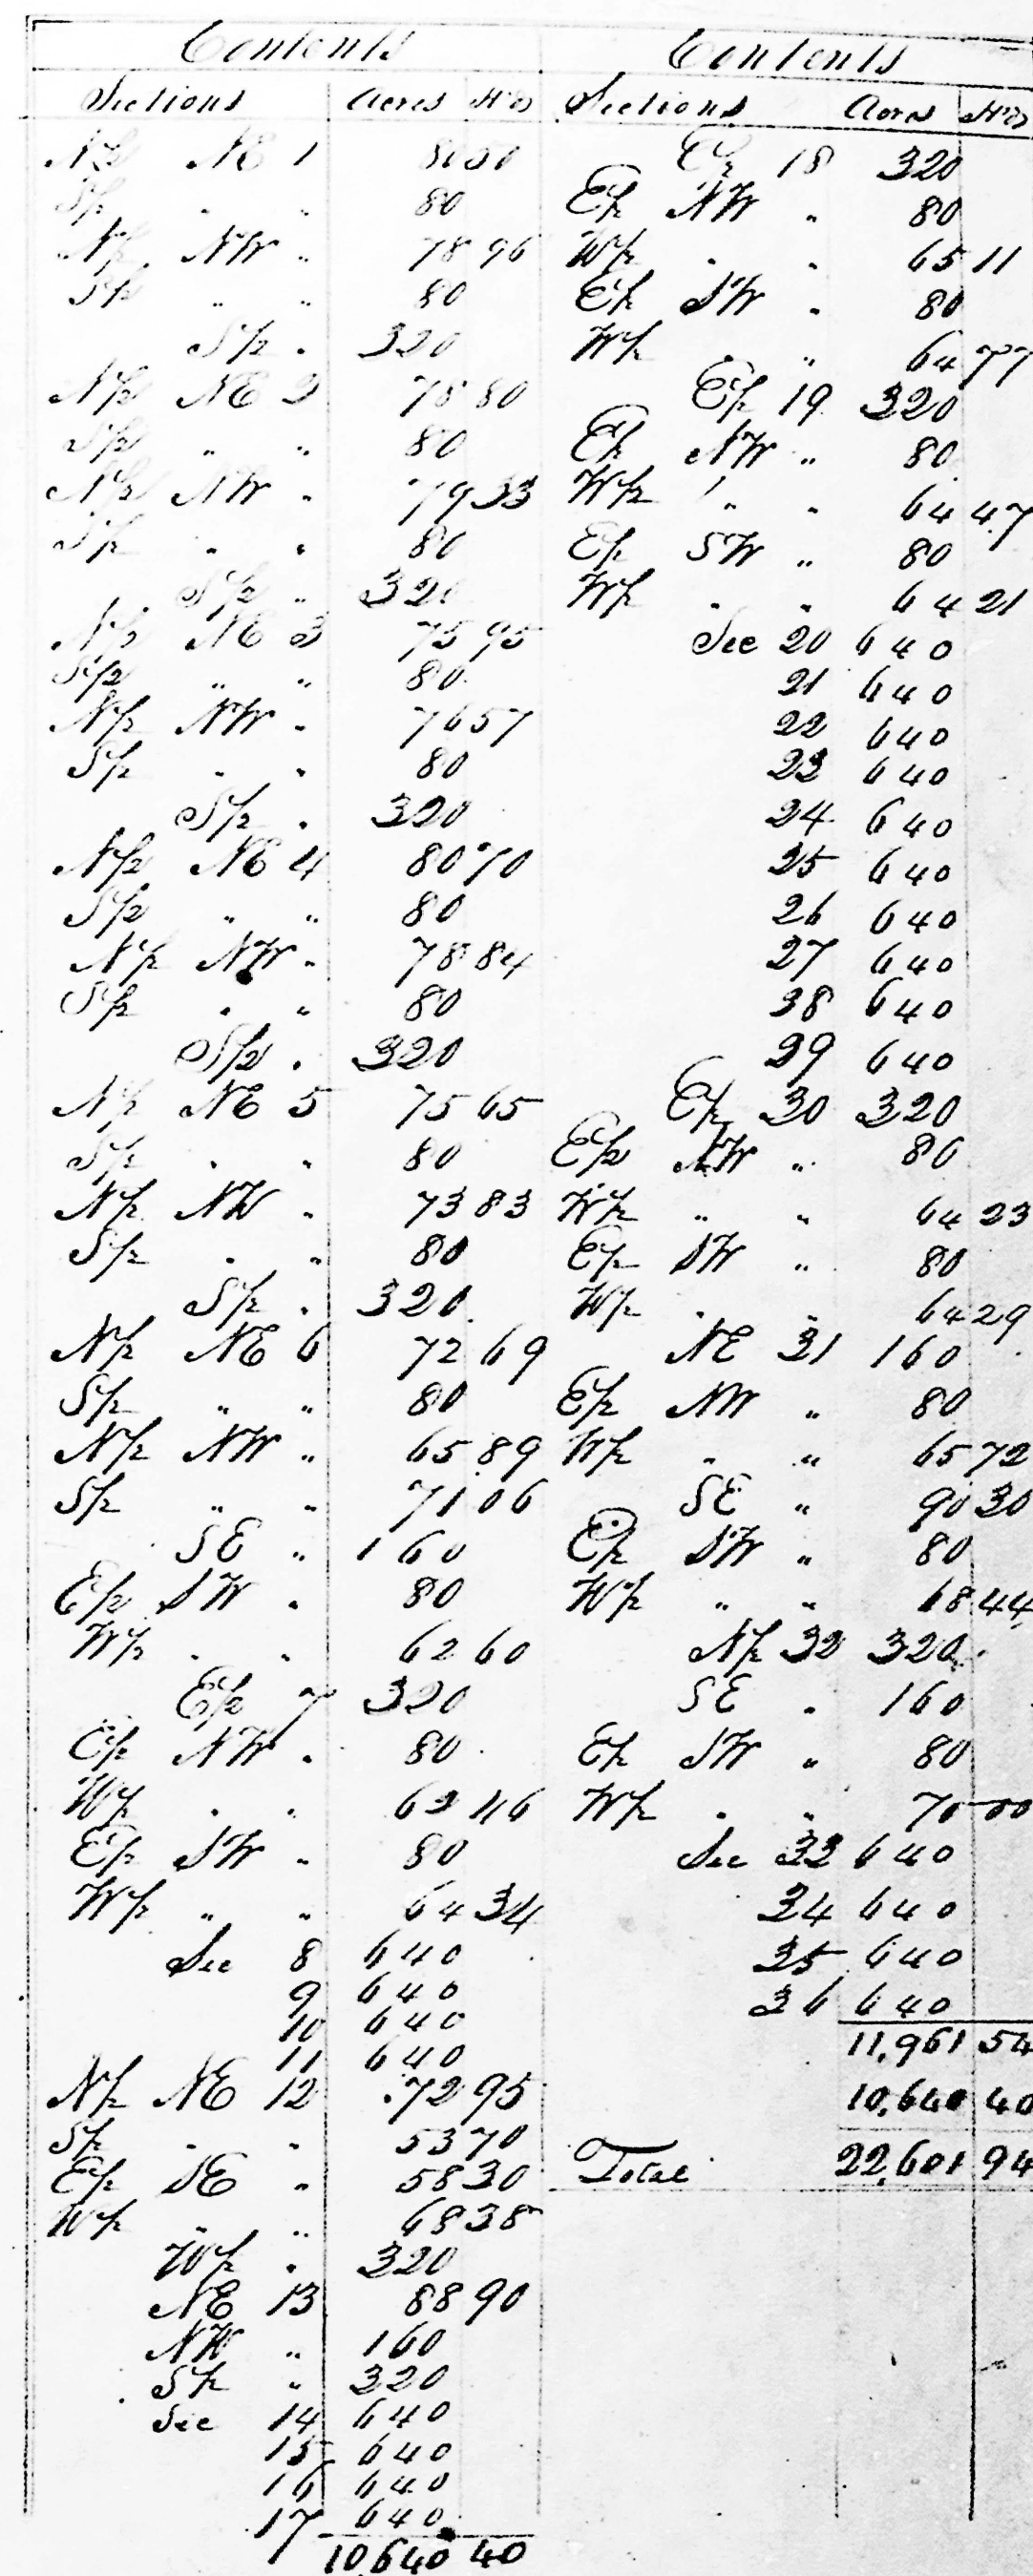 Contents
Sections Acres H'ds
N½ NE 1 80 50
S½ " " 80
N½ NW " 78 96
S½ " " 80
S½ " 320
N½ NE 2 78 80
S½ " " 80
N½ NW " 79 33
S½ " " 80
S½ " 320
N½ NE 3 75 95
S½ " " 80
N½ NW " 76 57
S½ " " 80
S½ " 320
N½ NE 4 80 70
S½ " " 80
N½ NW " 78 84
S½ " " 80
S½ " 320
N½ NE 5 75 65
S½ " " 80
N½ NW " 73 83
S½ " " 80
S½ " 320
N½ NE 6 72 69
S½ " " 80
N½ NW " 65 89
S½ " " 71 06
SE " 160
E½ SW " 80
W½ " " 62 60
E½ 7 320
E½ NW " 80
W½ " " 62 46
E½ SW " 80
W½ " " 64 34
Sec 8 640
9 640
10 640
11 640
N½ NE 12 72 95
S½ " " 53 70
E½ SE " 58 30
W½ " " 68 38
W½ " 320
NE 13 88 90
NW " 160
S½ " 320
Sec 14 640
15 640
16 640
17 640
10,640 40
Contents
Sections Acres H'ds
E½ 18 320
E½ NW " 80
W½ " " 65 11
E½ SW " 80
W½ " " 64 77
E½ 19 320
E½ NW " 80
W½ " " 64 47
E½ SW " 80
W½ " " 64 21
Sec 20 640
21 640
22 640
23 640
24 640
25 640
26 640
27 640
28 640
29 640
E½ 30 320
E½ NW " 80
W½ " " 64 23
E½ SW " 80
W½ " " 64 29
NE 31 160
E½ NW " 80
W½ " " 65 72
SE " 90 30
E½ SW " 80
W½ " " 68 44
N½ 32 320
SE " 160
E½ SW " 80
W½ " " 70 00
Sec 33 640
34 640
35 640
36 640
11,961 54
10,640 40
Total 22,601 94